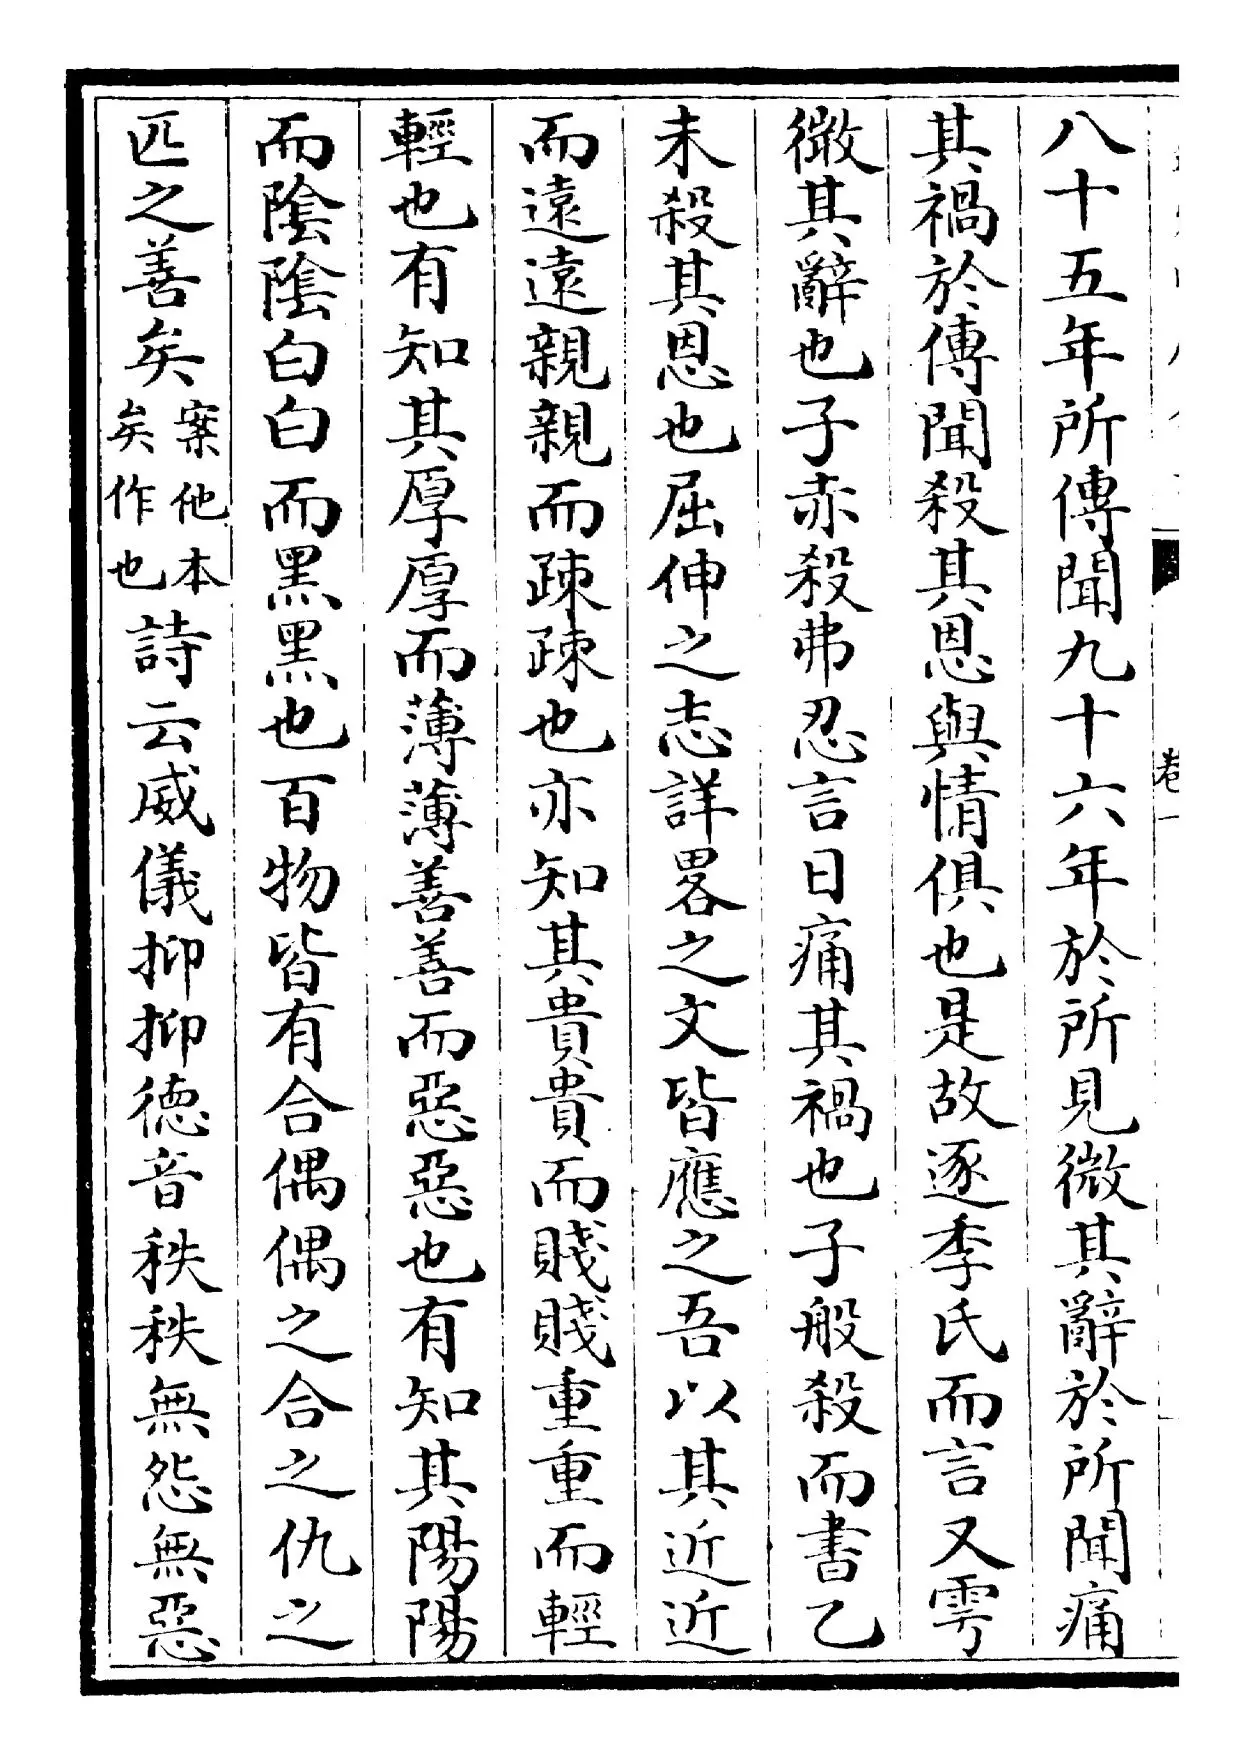 卷一
八十五年所傳聞九十六年於所見微其辭於所聞痛
其禍於傳聞殺其恩與情俱也是故逐季氏而言又雩
微其辭也子赤殺弗忍言日痛其禍也子般殺而書乙
未殺其恩也屈伸之志詳畧之文皆應之吾以其近近
而遠遠親親而疎疎也亦知其貴貴而賤賤重重而輕
輕也有知其厚厚而薄薄善善而惡惡也有知其陽陽
而陰陰白白而黑黑也百物皆有合偶偶之合之仇之
匹之善矣案他本矣作也詩云威儀抑抑德音秩秩無怨無惡